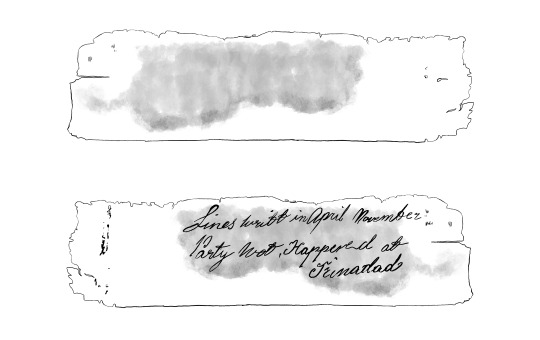 Lines writt in April November
Party Wot, Happened at
Trinadad